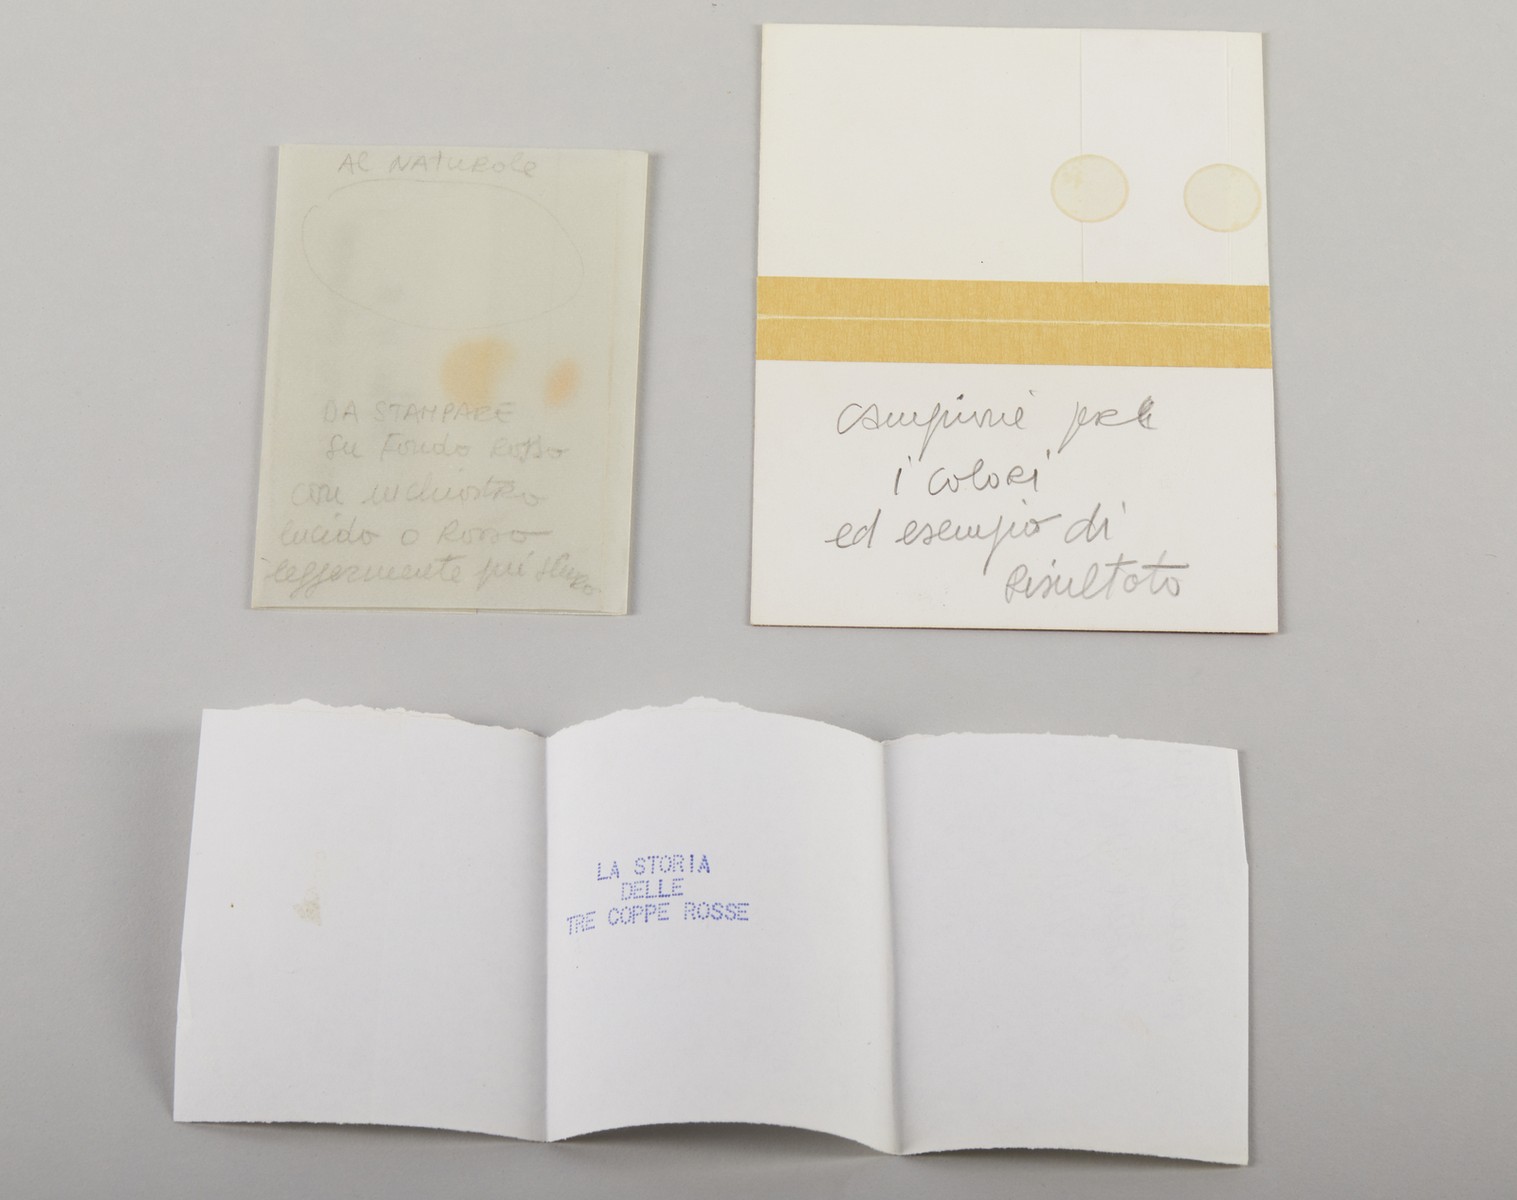 Al NATURale
DA STAMPARE
su Fondo Rosso
con inchiostro
lucido o Rosso
leggermente più scuro
campione per
i colori
ed esempio di
Risultato
LA STORIA
DELLE
TRE COPPE ROSSE